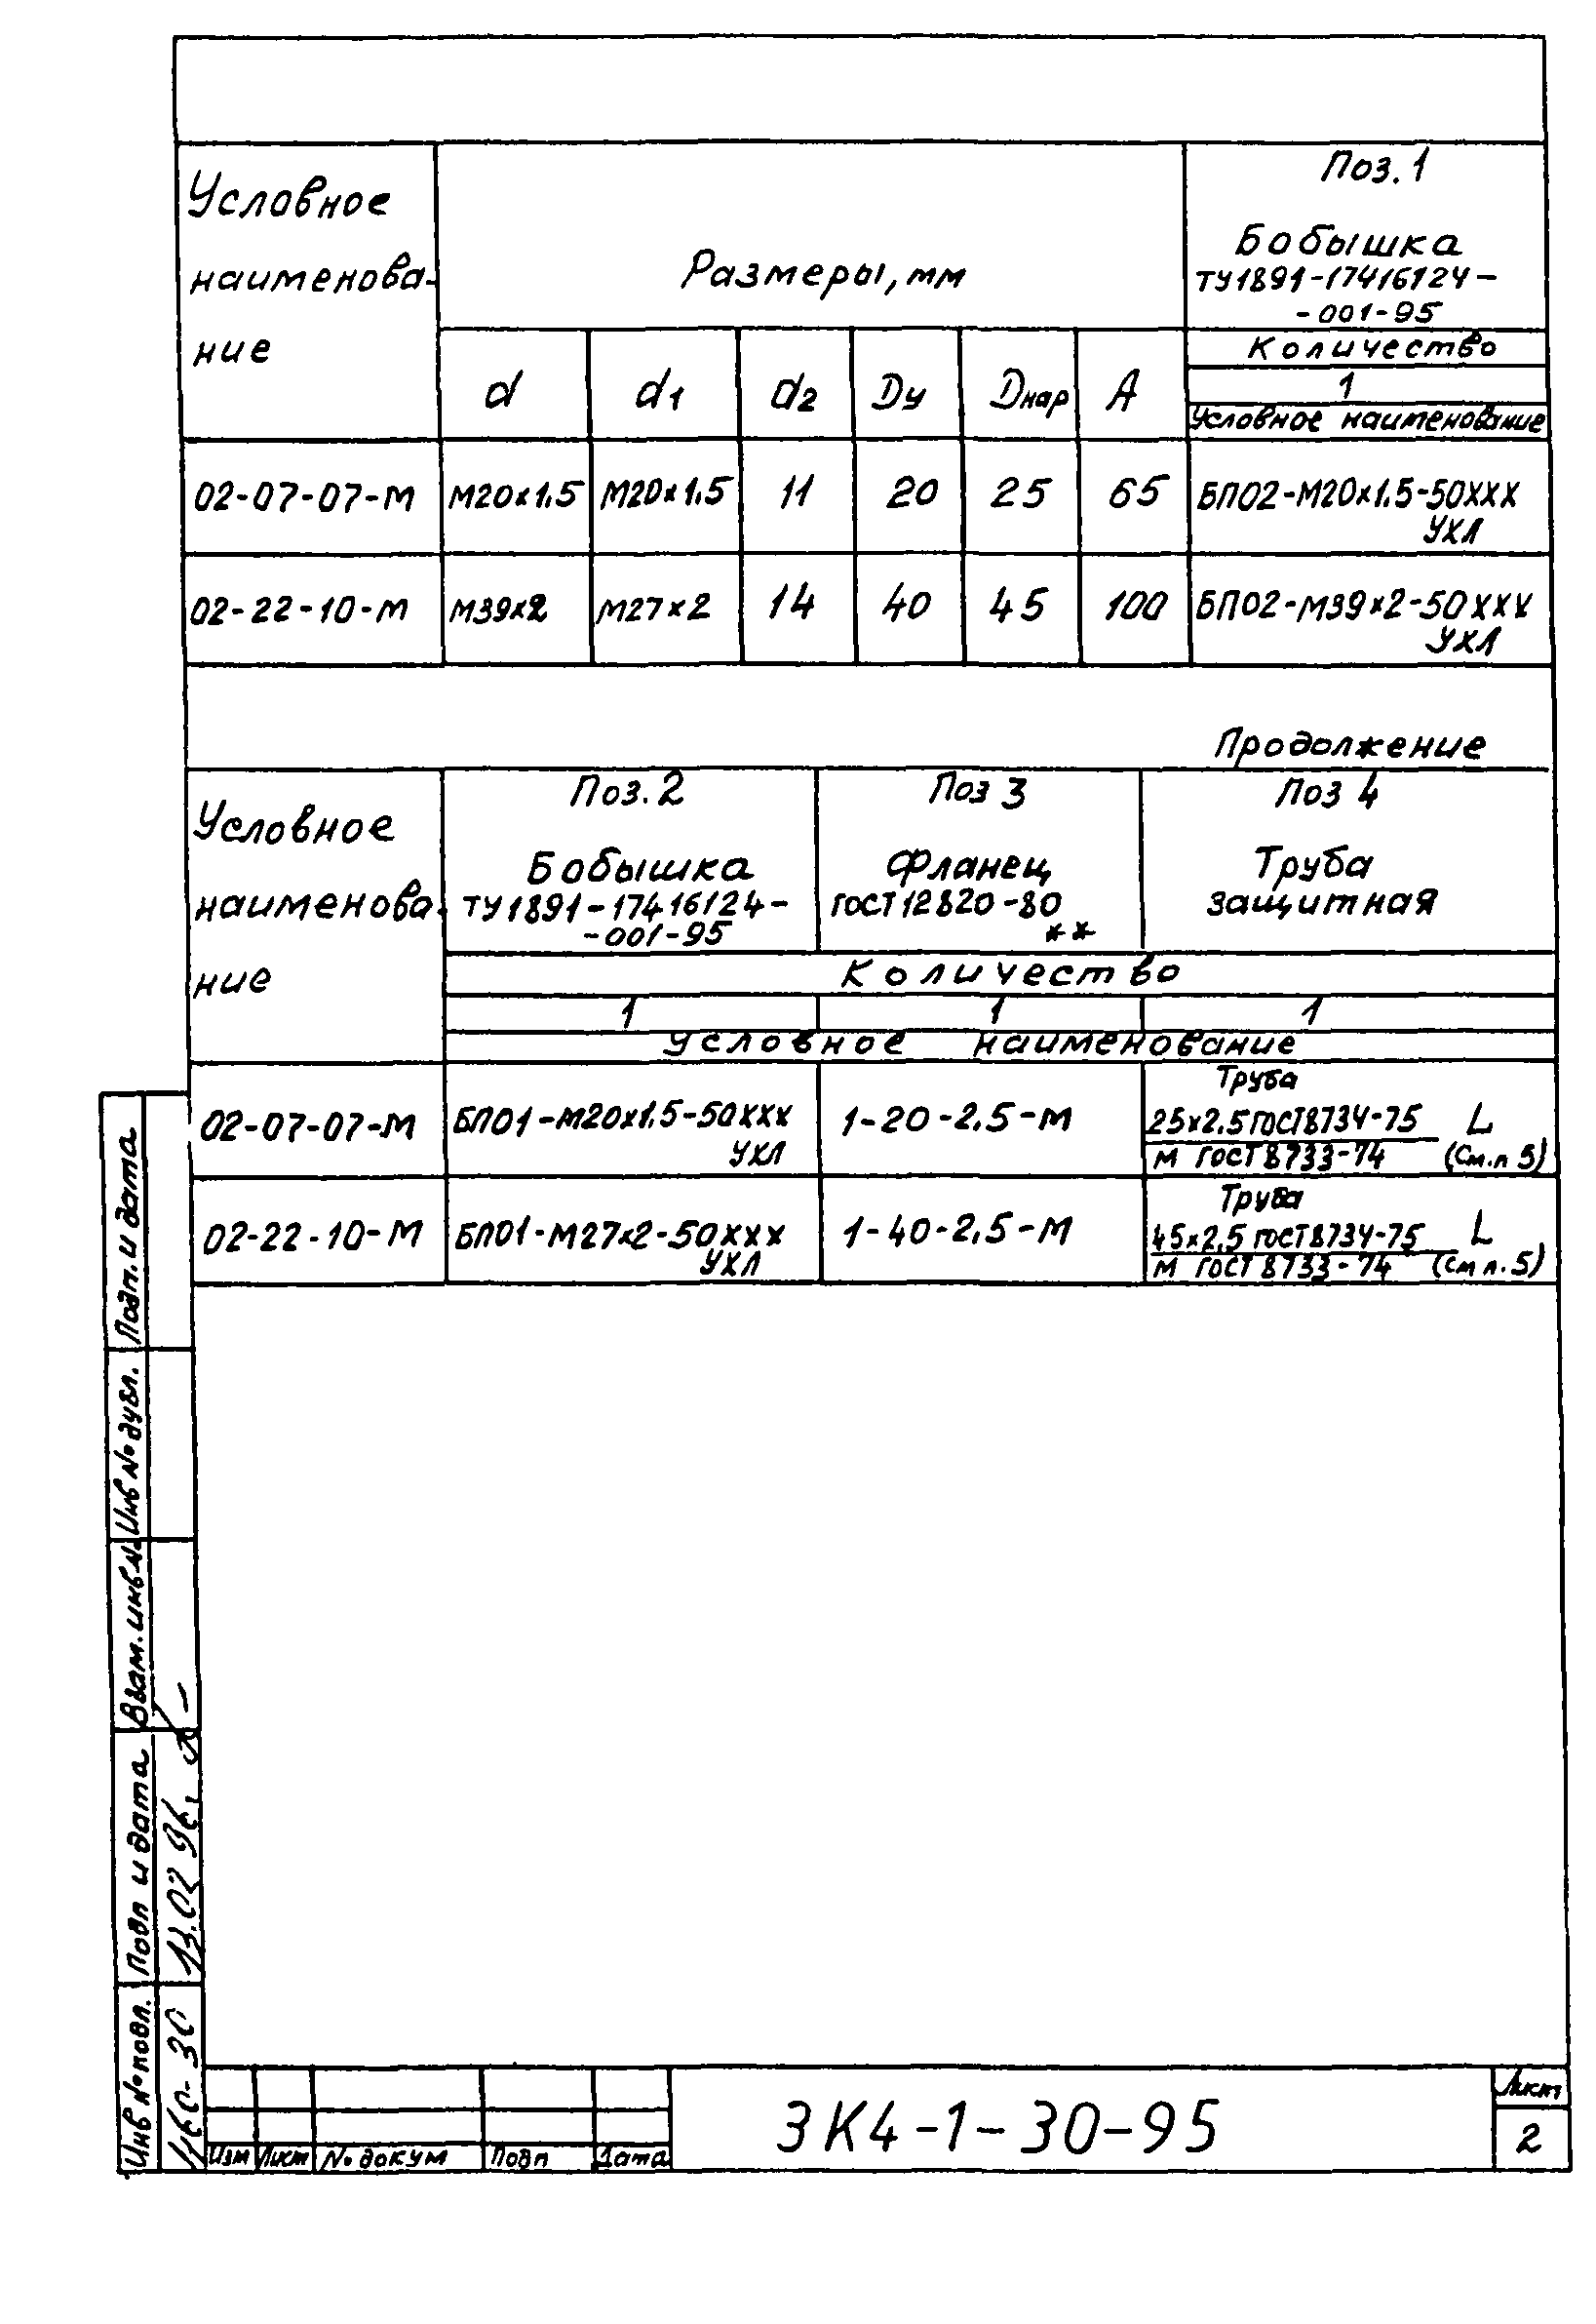 Условное
наименова-
ние
Размеры, мм
Поз. 1
Бобышка
ТУ1891-17416124-
-001-95
Количество
1
Условное наименование
d d1 d2 Dу Dнар A
02-07-07-М М20х1,5 М20х1,5 11 20 25 65 БП02-М20х1,5-50ХХХ
УХЛ
02-22-10-М М39х2 М27х2 14 40 45 100 БП02-М39х2-50ХХХ
УХЛ
Продолжение
Условное
наименова-
ние
Поз. 2
Бобышка
ТУ1891-17416124-
-001-95
Поз 3
Фланец
ГОСТ12820-80
**
Поз 4
Труба
защитная
Количество
1 1 1
Условное наименование
02-07-07-М БП01-М20х1,5-50ХХХ
УХЛ
1-20-2,5-М
Труба
25х2,5 ГОСТ8734-75 L
М ГОСТ8733-74 (См.п 5)
02-22-10-М БП01-М27х2-50ХХХ
УХЛ
1-40-2,5-М
Труба
45х2,5 ГОСТ8734-75 L
М ГОСТ8733-74 (См п. 5)
Подп. и дата
Инв № дубл.
Взам. инв №
Подп и дата
13.02 96.
Инв № подл.
30
Изм Лист № докум Подп Дата
ЗК4-1-30-95
Лист
2